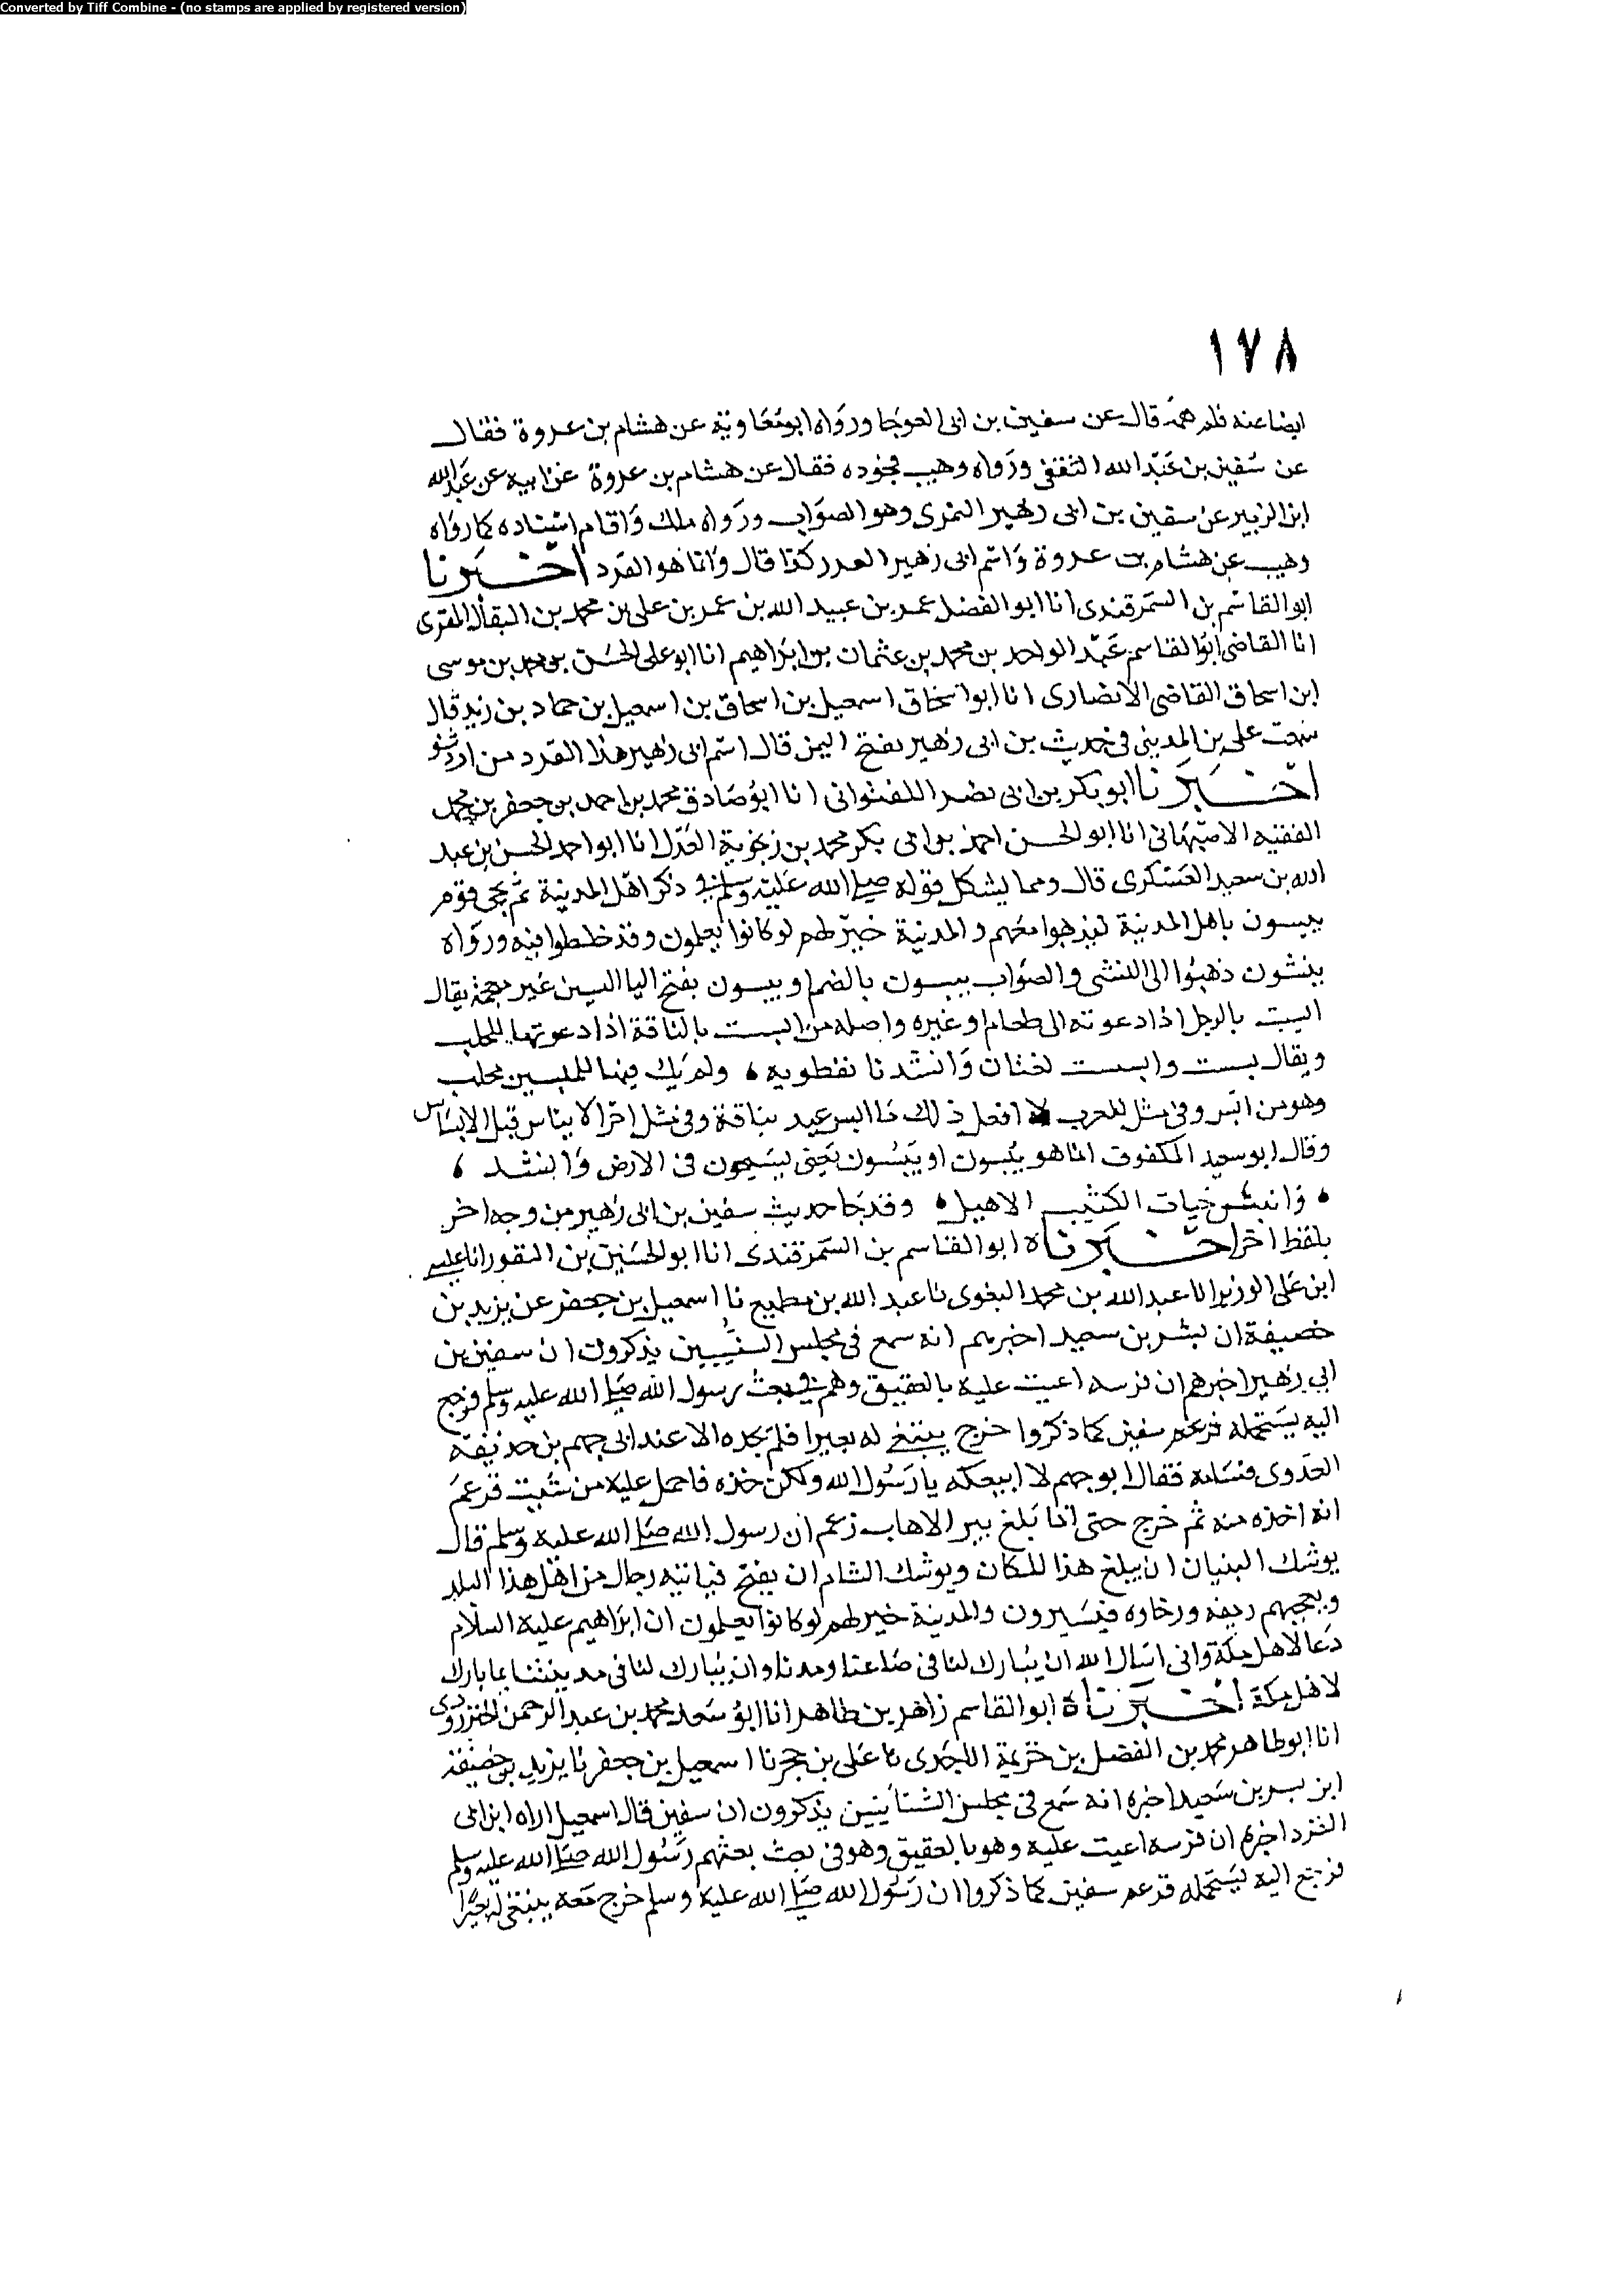 Converted by Tiff Combine - (no stamps are applied by registered version)
١٧٨
ايضا عنه فلم قال عن سفين بن ابى العوجا ورواه ابو معاوية عن هشام بن عروة فقال
عن سفين بن عبد الله الثقفى ورواه وهيب فجوده فقال عن هشام بن عروة عن ابيه عن عبد الله
ابن الزبير عن سفين بن ابى زهير النمرى وهو الصواب ورواه ملك واقام اسناده كما رواه
وهيب عن هشام بن عروة واسم ابى زهير العدر كذا قال وانا هو القرد اخبرنا
ابو القاسم بن السمرقندى انا ابو الفضل عمر بن عبيد الله بن عمر بن على بن محمد بن البقال المقرى
انا القاضى ابو القاسم عبد الواحد بن محمد بن عثمان بن ابراهيم انا ابو على الحسن بن محمد بن موسى
ابن اسحاق القاضى الانصارى انا ابو اسحاق اسمعيل بن اسحاق بن اسمعيل بن حماد بن زيد قال
سمعت على بن المدينى فى حديث بن ابى زهير بفتح اليمن قال اسم ابى زهير هذا القرد من ازد شنو
اخبرنا ابو بكر بن ابى نصر اللفتوانى انا ابو صادق محمد بن احمد بن جعفر بن محمد
الفقيه الاصبهانى انا ابو الحسن احمد بن ابى بكر محمد بن زنجوية العدل انا ابو احمد الحسن بن عبد
الله بن سعيد العسكرى قال ومما يشكل قوله صلى الله عليه وسلم فى ذكر اهل المدينة ثم يجى قوم
يبسون باهل المدينة ليذهبوا معهم والمدينة خير لهم لو كانوا يعلمون وقد خلطوا فيه ورواه
ينشون ذهبوا الى النشى والصواب يبسون بالضم او يبسون بفتح اليا السين غير معجمة يقال
ابست بالرجل اذا دعوته الى طعام او غيره واصله من ابست بالناقة اذا دعوتها للحلب
ويقال بست وابست لغتان وانشدنا نفطويه ، ولم يك فيها للمبسين محلب
وهو من ابس وفى مثل للعرب لا افعل ذلك ما ابس عبد بناقة وفى مثل اخر الايناس قبل الابساس
وقال ابو سعيد المكفوف انما هو يبسون او يبسون يعنى يسيحون فى الارض وانشد ،
، وانبس حيات الكثيب الاهيل ، وقد جا حديث سفين بن ابى زهير من وجه اخر
بلفظ اخر اخبرناه ابو القاسم بن السمرقندى انا ابو الحسين بن النقور انا عيسى
ابن على الوزير انا عبد الله بن محمد البغوى نا عبد الله بن مطيع نا اسمعيل بن جعفر عن يزيد بن
خصيفة ان بشر بن سعيد اخبرهم انه سمع فى مجلس يذكرون ان سفين بن
ابى زهير اخبرهم ان فرسه اعيت عليه بالعقيق وهم فى بعث رسول الله صلى الله عليه وسلم فرجع
اليه يستحمله فزعم سفين كما ذكروا خرج يبتغى له بعيرا فلم يجده الا عند ابى جهم بن حذيفة
العدوى فسامه فقال ابو جهم لا ابيعكه يا رسول الله ولكن خذه فاحمل عليه من شيت فزعم
انه اخذه منه ثم خرج حتى اذا بلغ بير الاهاب زعم ان رسول الله صلى الله عليه وسلم قال
يوشك البنيان ان يبلغ هذا المكان ويوشك الشام ان يفتح فياتيه رجال من اهل هذا البلد
ويعجبهم ريفه ورخاوه فيسيرون والمدينة خير لهم لو كانوا يعلمون ان ابراهيم عليه السلام
دعا لاهل مكة وانى اسال الله ان يبارك لنا فى صاعنا ومدنا وان يبارك لنا فى مدينتنا بما بارك
لاهل مكة اخبرناه ابو القاسم زاهر بن طاهر انا ابو سعد محمد بن عبد الرحمن الخنزرودى
انا ابو طاهر محمد بن الفضل بن خزيمة نا على بن حجر نا اسمعيل بن جعفر نا يزيد بن خصيفة
ابن بسر بن سعيد اخبره انه سمع فى مجلس الشنايين يذكرون ان سفين قال اسمعيل اراه ابن ابى
القرد اخبرهم ان فرسه اعيت عليه وهو بالعقيق وهو فى بعث بعثهم رسول الله صلى الله عليه وسلم
فرجع اليه يستحمله فزعم سفين كما ذكروا ان رسول الله صلى الله عليه وسلم خرج معه يبتغى له بعيرا